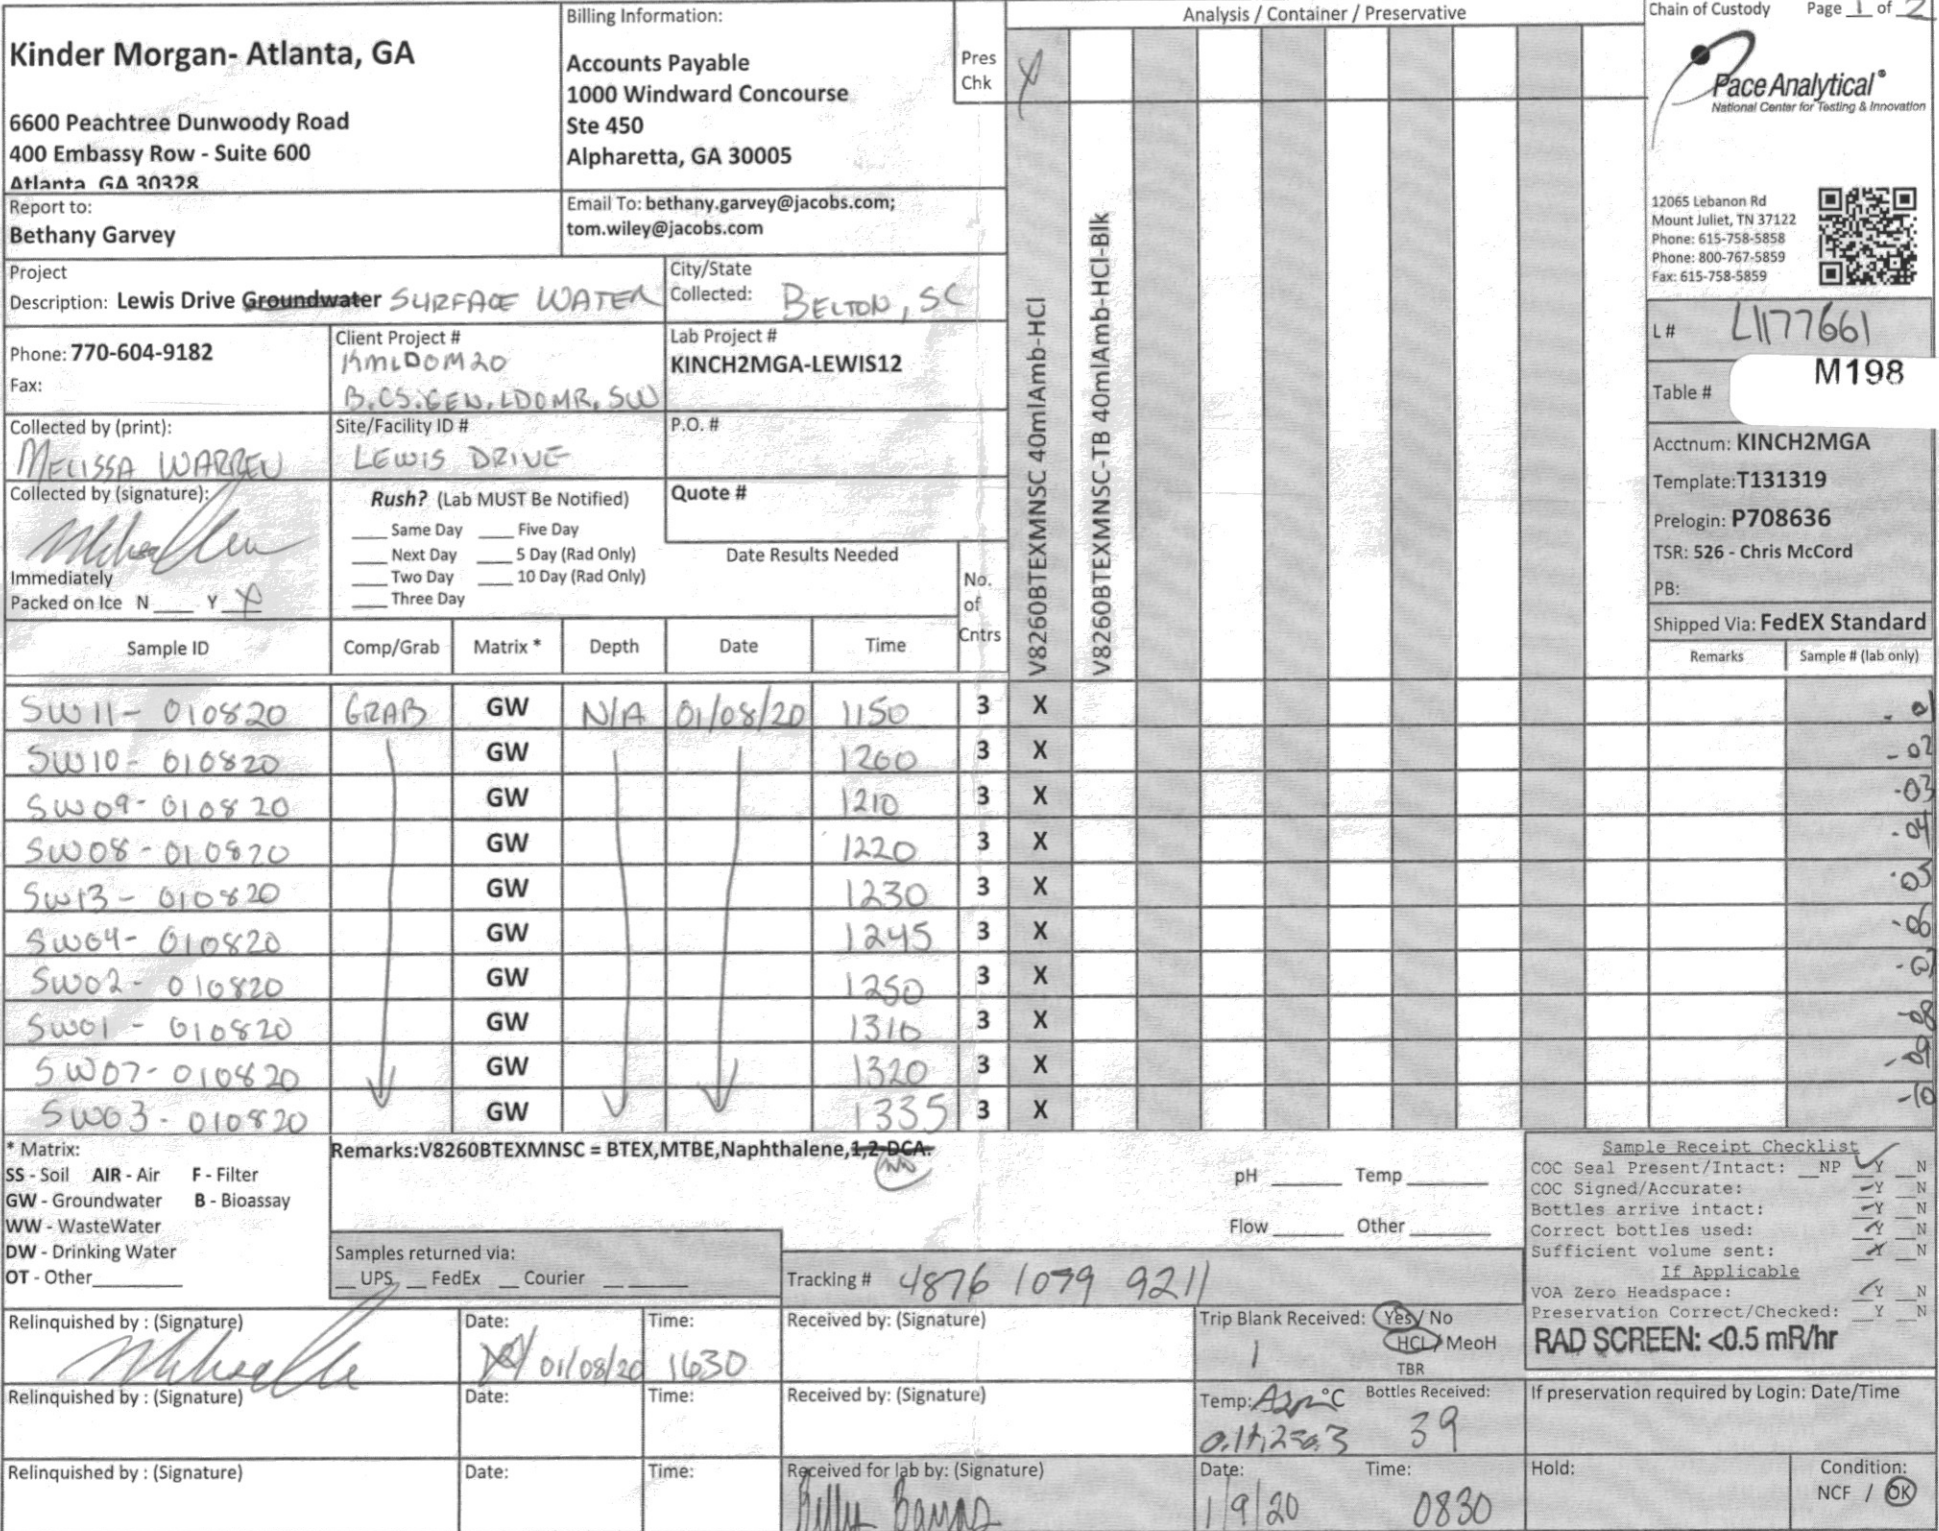 Kinder Morgan- Atlanta, GA
6600 Peachtree Dunwoody Road
400 Embassy Row - Suite 600
Atlanta GA 30328
Billing Information:
Accounts Payable
1000 Windward Concourse
Ste 450
Alpharetta, GA 30005
Pres
Chk
X
Analysis / Container / Preservative
V8260BTEXMNSC 40mlAmb-HCl
V8260BTEXMNSC-TB 40mlAmb-HCl-Blk
Chain of Custody Page 1 of 2
Pace Analytical®
National Center for Testing & Innovation
12065 Lebanon Rd
Mount Juliet, TN 37122
Phone: 615-758-5858
Phone: 800-767-5859
Fax: 615-758-5859
Report to:
Bethany Garvey
Email To: bethany.garvey@jacobs.com;
tom.wiley@jacobs.com
Project
Description: Lewis Drive Groundwater SURFACE WATER
City/State
Collected: BELTON, SC
Phone: 770-604-9182
Fax:
Client Project #
KMLDOM20
B.CS.GEN.LDOMR.SW
Lab Project #
KINCH2MGA-LEWIS12
L# L1177661
Table # M198
Collected by (print):
MELISSA WARREN
Site/Facility ID #
LEWIS DRIVE
P.O. #
Acctnum: KINCH2MGA
Template:T131319
Prelogin: P708636
TSR: 526 - Chris McCord
PB:
Shipped Via: FedEX Standard
Collected by (signature):
Rush? (Lab MUST Be Notified)
___ Same Day ___ Five Day
___ Next Day ___ 5 Day (Rad Only)
___ Two Day ___ 10 Day (Rad Only)
___ Three Day
Quote #
Date Results Needed
Immediately
Packed on Ice N ___ Y X
No.
of
Cntrs
Sample ID Comp/Grab Matrix * Depth Date Time Remarks Sample # (lab only)
SW11- 010820 GRAB GW N/A 01/08/20 1150 3 X - 01
SW10- 010820 GW 1200 3 X - 02
SW09- 010820 GW 1210 3 X -03
SW08-010820 GW 1220 3 X -04
SW13- 010820 GW 1230 3 X -05
SW04- 010820 GW 1245 3 X -06
SW02- 010820 GW 1250 3 X -07
SW01 - 010820 GW 1310 3 X -08
SW07-010820 GW 1320 3 X -09
SW03-010820 GW 1335 3 X -10
* Matrix:
SS - Soil AIR - Air F - Filter
GW - Groundwater B - Bioassay
WW - WasteWater
DW - Drinking Water
OT - Other
Remarks:V8260BTEXMNSC = BTEX,MTBE,Naphthalene,1,2-DCA.
pH ______ Temp ______
Flow ______ Other ______
Samples returned via:
__ UPS __ FedEx __ Courier __
Tracking # 4876 1099 9211
Sample Receipt Checklist
COC Seal Present/Intact: __NP ✓Y __N
COC Signed/Accurate: ✓Y __N
Bottles arrive intact: ✓Y __N
Correct bottles used: ✓Y __N
Sufficient volume sent: ✓Y __N
If Applicable
VOA Zero Headspace: ✓Y __N
Preservation Correct/Checked: __Y __N
RAD SCREEN: <0.5 mR/hr
Relinquished by : (Signature)
Date: 01/08/20
Time: 1630
Received by: (Signature)
Trip Blank Received: Yes / No
1 HCL / MeoH
TBR
Relinquished by : (Signature)
Date:
Time:
Received by: (Signature)
Temp: °C
Bottles Received:
39
If preservation required by Login: Date/Time
Relinquished by : (Signature)
Date:
Time:
Received for lab by: (Signature)
Date: 1/9/20
Time: 0830
Hold:
Condition:
NCF / OK